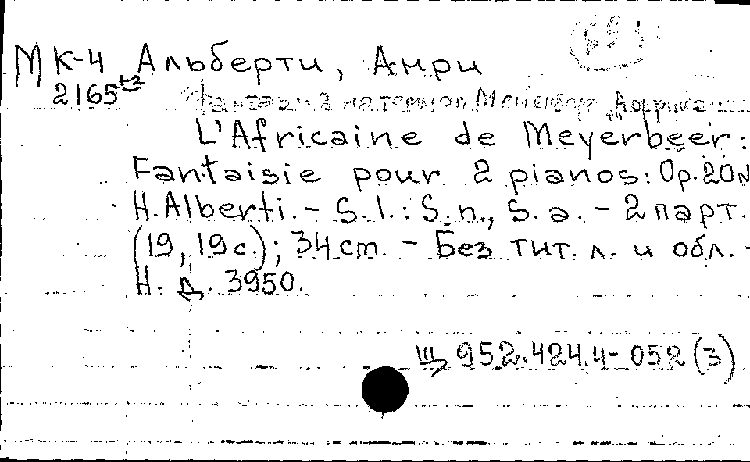 МК-4 Альберти, Анри
2165
L'Africaine de Meyerbeer:
Fantaisie pour 2 pianos: Op. 20 N
H. Alberti. - S. l.: S. n., S. a. - 2 парт.
(19, 19 с.); 34 cm. - Без тит. л. и обл. -
Н. д. 3950.
Щ 952.424.4-052 (3)